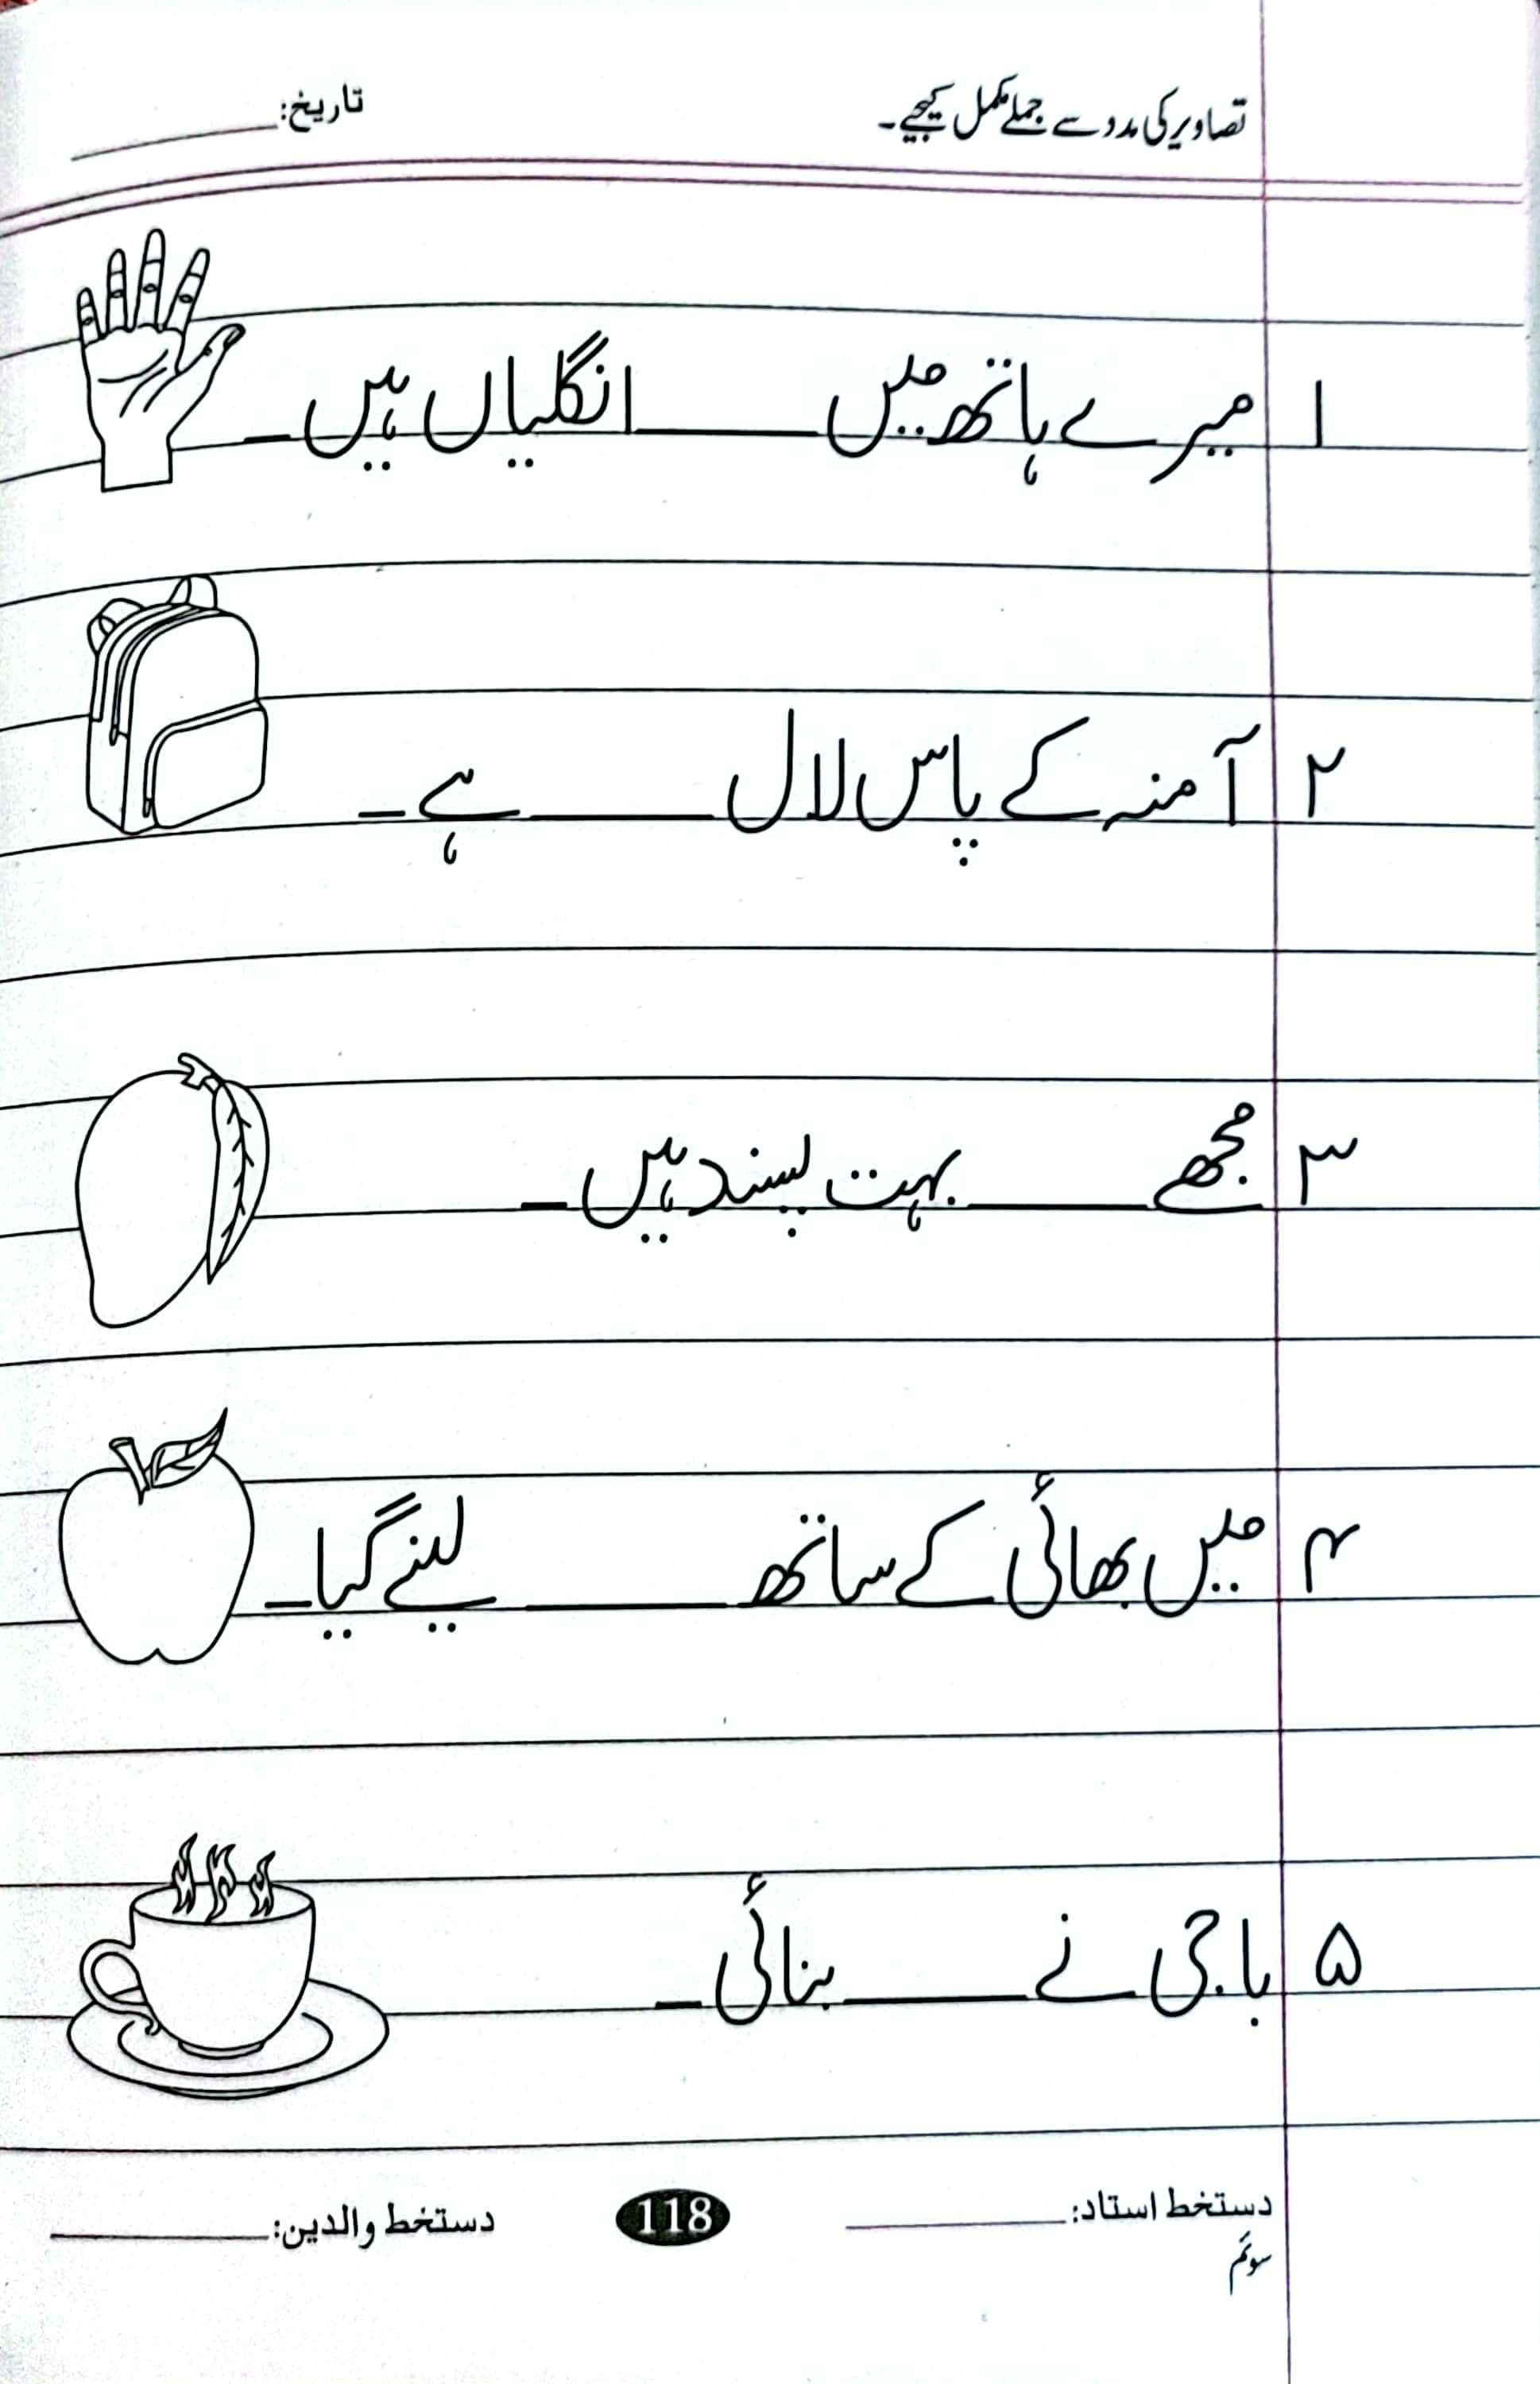 تصاویر کی مدد سے جملے مکمل کیجیے۔ تاریخ: ________
۱ میرے ہاتھ میں ________ انگلیاں ہیں۔
۲ آمنہ کے پاس لال ________ ہے۔
۳ مجھے ________ بہت پسند ہیں۔
۴ میں بھائی کے ساتھ ________ لینے گیا۔
۵ باجی نے ________ بنائی۔
دستخط استاد: ________ 118 دستخط والدین: ________
سوئم